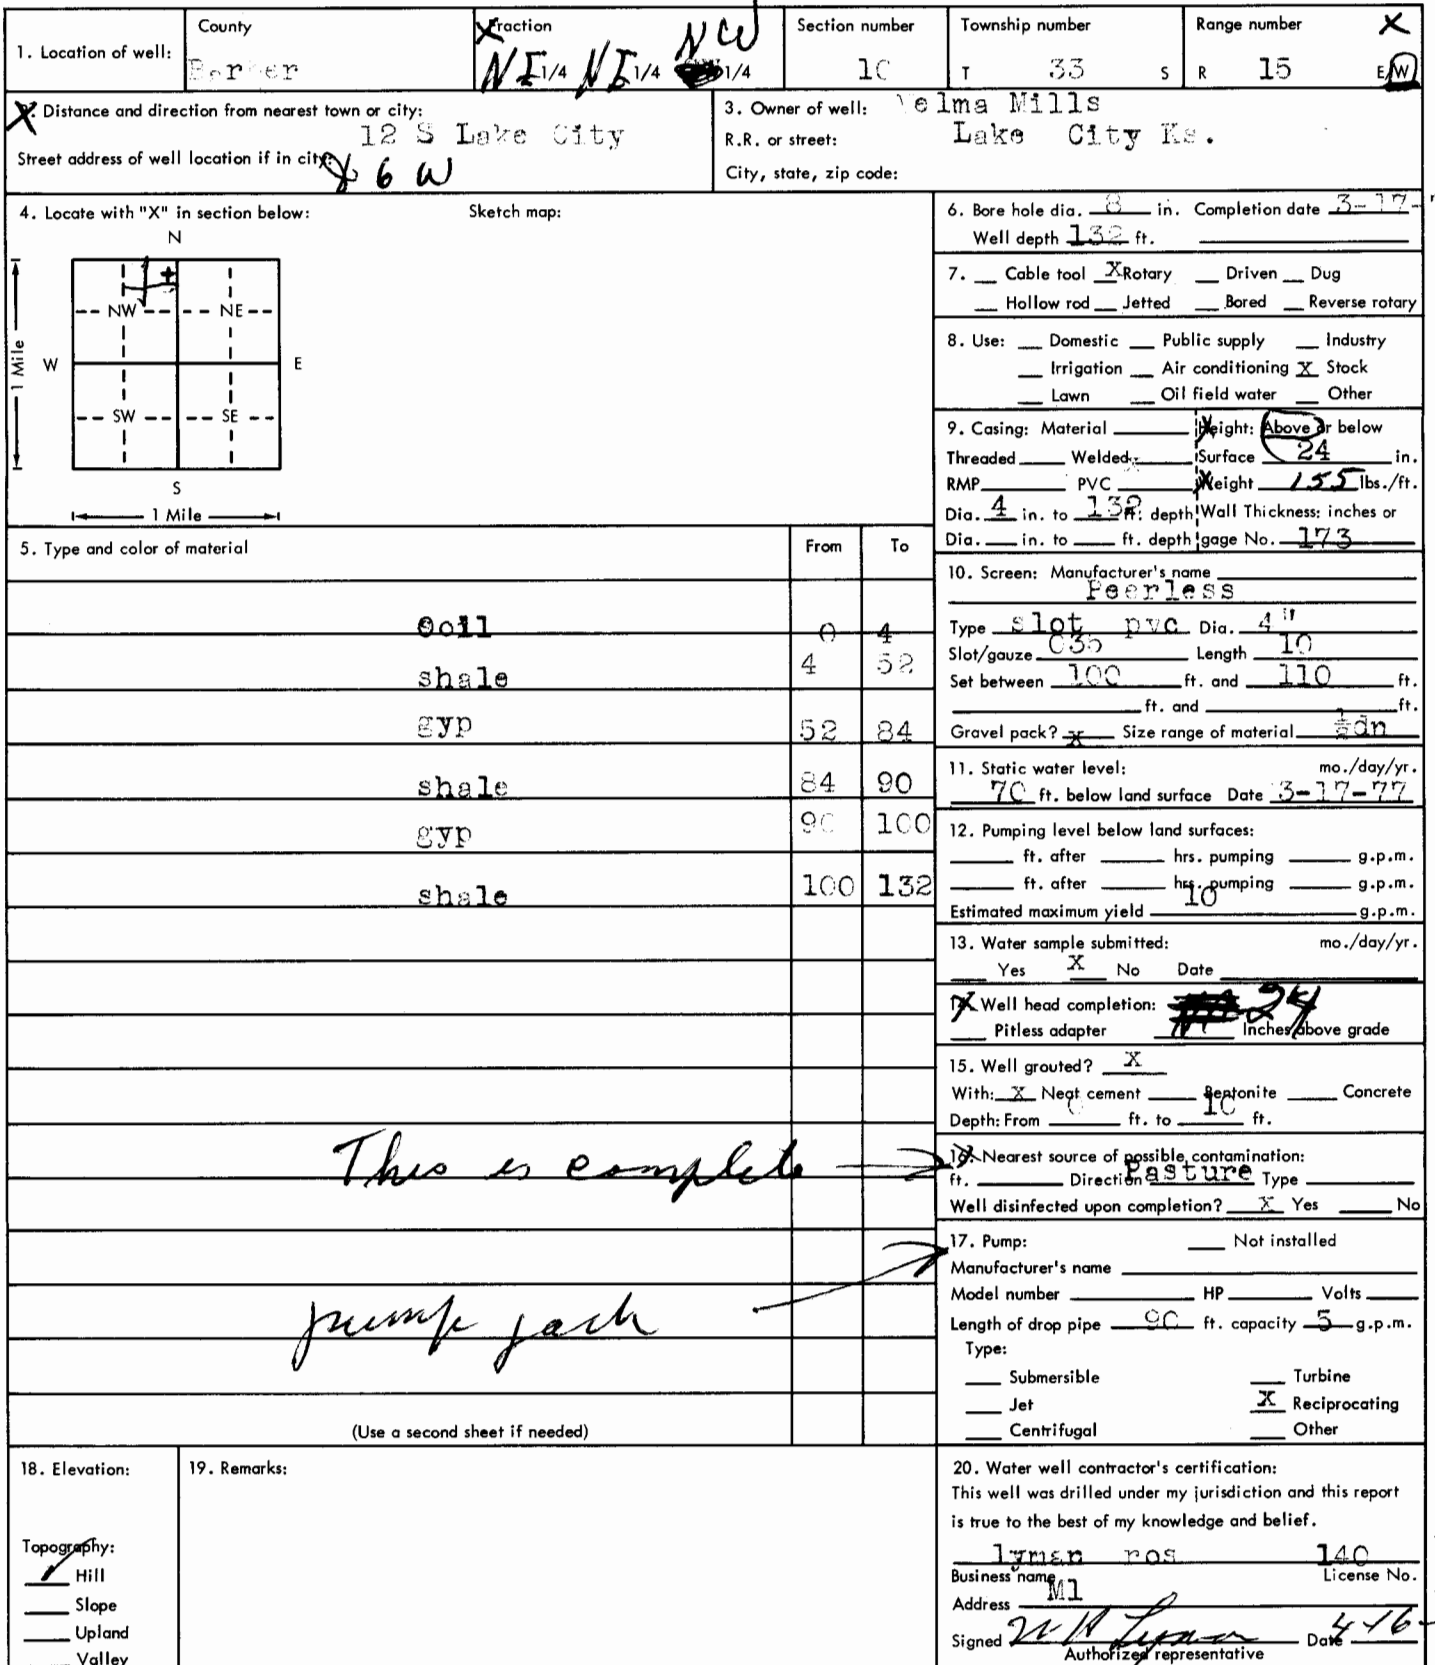 1. Location of well:
County
Fraction
NE 1/4 NE 1/4 NW 1/4
Section number
10
Township number
T 33 S
Range number
R 15 E/W
Distance and direction from nearest town or city:
12 S Lake City
Street address of well location if in city:
6 W
3. Owner of well: Velma Mills
R.R. or street: Lake City Ks.
City, state, zip code:
4. Locate with "X" in section below:
Sketch map:
N
NW NE
W E
1 Mile
SW SE
S
1 Mile
5. Type and color of material From To
0 4
shale 4 52
gyp 52 84
shale 84 90
gyp 90 100
shale 100 132
This is complete
pump jack
(Use a second sheet if needed)
6. Bore hole dia. 8 in. Completion date 3-17-
Well depth 132 ft.
7. Cable tool X Rotary Driven Dug
Hollow rod Jetted Bored Reverse rotary
8. Use: Domestic Public supply Industry
Irrigation Air conditioning X Stock
Lawn Oil field water Other
9. Casing: Material Height: Above or below
Threaded Welded Surface 24 in.
RMP PVC Weight 155 lbs./ft.
Dia. 4 in. to 132 ft. depth Wall Thickness: inches or
Dia. in. to ft. depth gage No. 173
10. Screen: Manufacturer's name
Peerless
Type slot pvc Dia. 4"
Slot/gauze 035 Length 10
Set between 100 ft. and 110 ft.
ft. and ft.
Gravel pack? x Size range of material ½dn
11. Static water level: mo./day/yr.
70 ft. below land surface Date 3-17-77
12. Pumping level below land surfaces:
ft. after hrs. pumping g.p.m.
ft. after hrs. pumping g.p.m.
Estimated maximum yield 10 g.p.m.
13. Water sample submitted: mo./day/yr.
Yes X No Date
Well head completion: 24
Pitless adapter Inches above grade
15. Well grouted? X
With: X Neat cement Bentonite Concrete
Depth: From 0 ft. to 10 ft.
16. Nearest source of possible contamination:
ft. Direction Pasture Type
Well disinfected upon completion? X Yes No
17. Pump: Not installed
Manufacturer's name
Model number HP Volts
Length of drop pipe 90 ft. capacity 5 g.p.m.
Type:
Submersible Turbine
Jet X Reciprocating
Centrifugal Other
18. Elevation:
Topography:
Hill
Slope
Upland
Valley
19. Remarks:
20. Water well contractor's certification:
This well was drilled under my jurisdiction and this report
is true to the best of my knowledge and belief.
lyman ros 140
Business name License No.
Address Ml
Signed Lyman Date 4-16-
Authorized representative